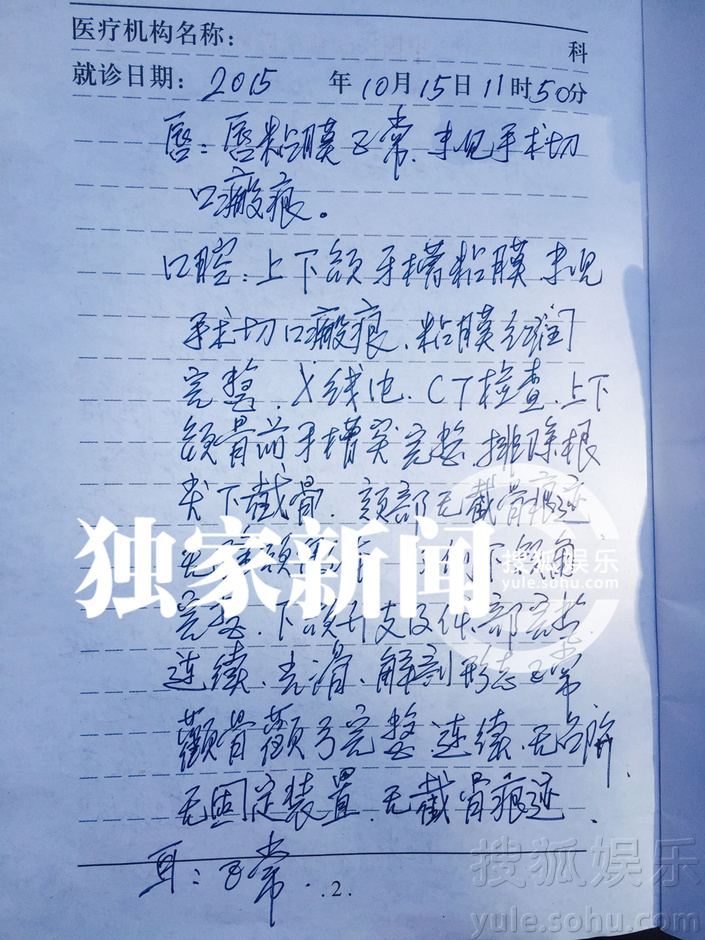 医疗机构名称:
科
就诊日期: 2015 年10月15日11时50分
唇：唇粘膜正常，未见手术切
口瘢痕。
口腔：上下颌牙槽粘膜未见
手术切口瘢痕，粘膜红润
完整、X线
、CT检查，上下
颌骨前牙槽突完整，排除根
尖下截骨，颏部无截骨痕迹
独家新闻
搜狐娱乐
yule.sohu.com
下颌角
完整、下颌升支及体部完整、
连续、光滑、解剖形态正常
颧骨颧弓完整、连续、无台阶、
无固定装置、无截骨痕迹、
耳：正常
.2.
搜狐娱乐
yule.sohu.com